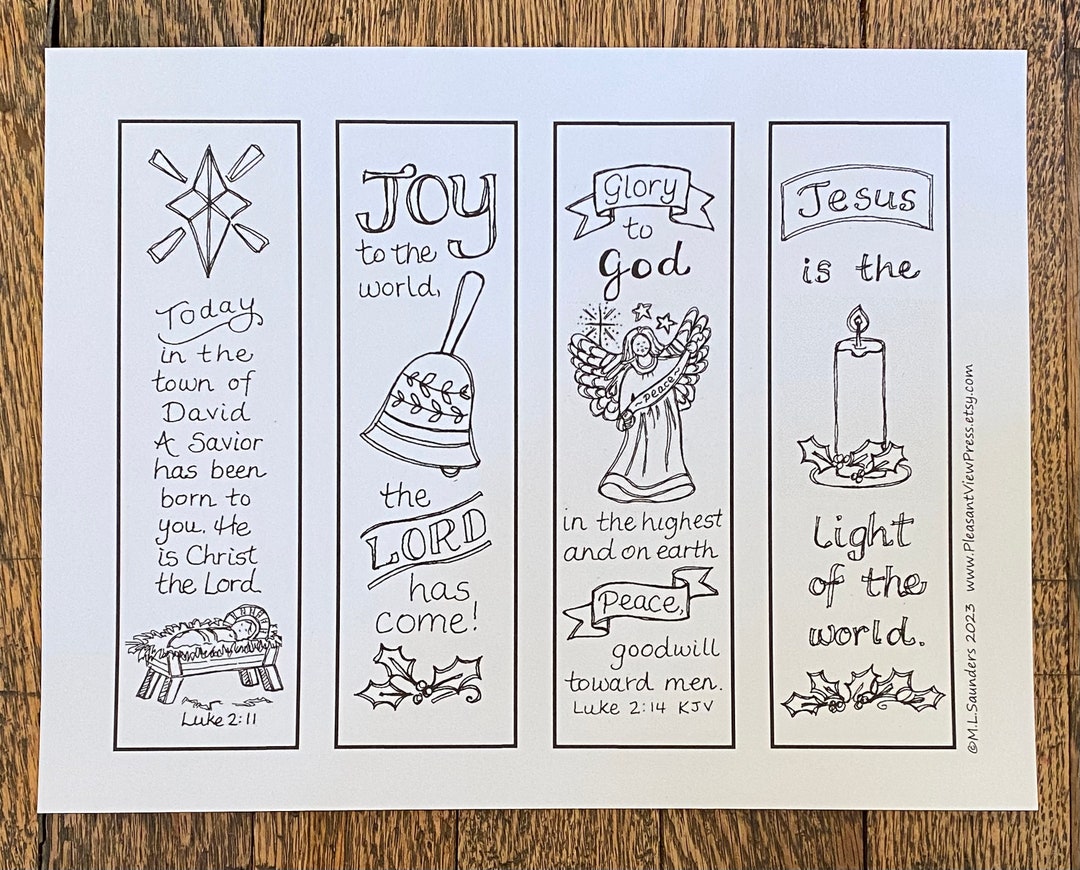 Today
in the
town of
David
A Savior
has been
born to
you. He
is Christ
the Lord
Luke 2:11
Joy
to the
world,
the
LORD
has
come!
Glory
to
God
~Peace~
in the highest
and on earth
Peace,
goodwill
toward men.
Luke 2:14 KJV
Jesus
is the
Light
of the
world.
©M.L.Saunders 2023 www.PleasantViewPress.etsy.com